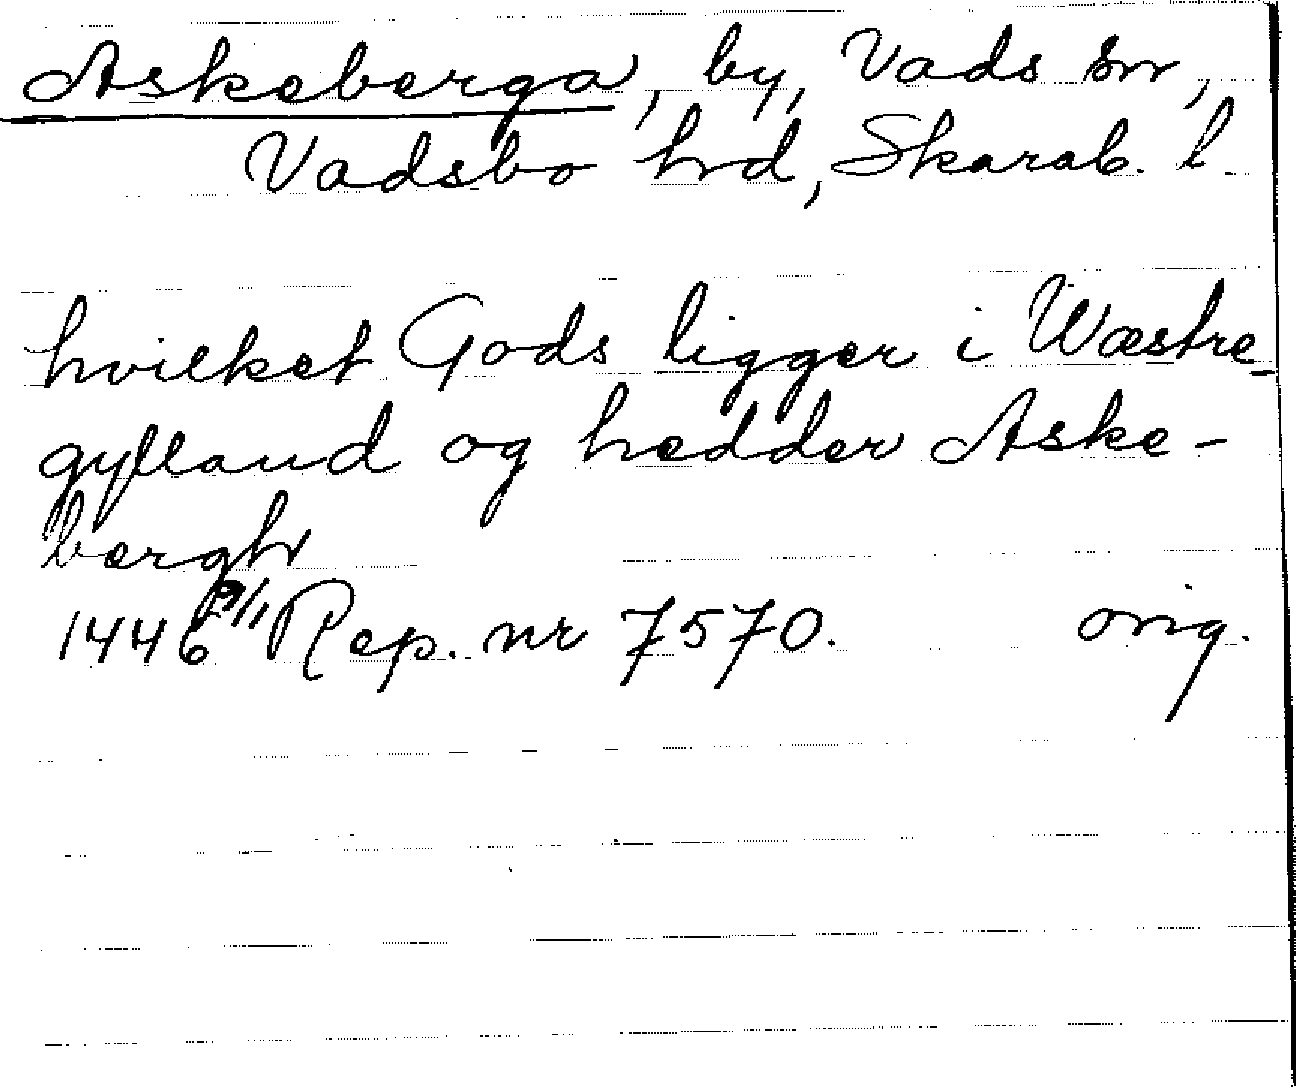 Askeberga, by, Vads sn,
Vadsbo hrd, Skarab. l.
hvilket Gods ligger i Wæstre-
gylland og hedder Aske-
bergh
1446 9/1 Rep. nr 7570. orig.